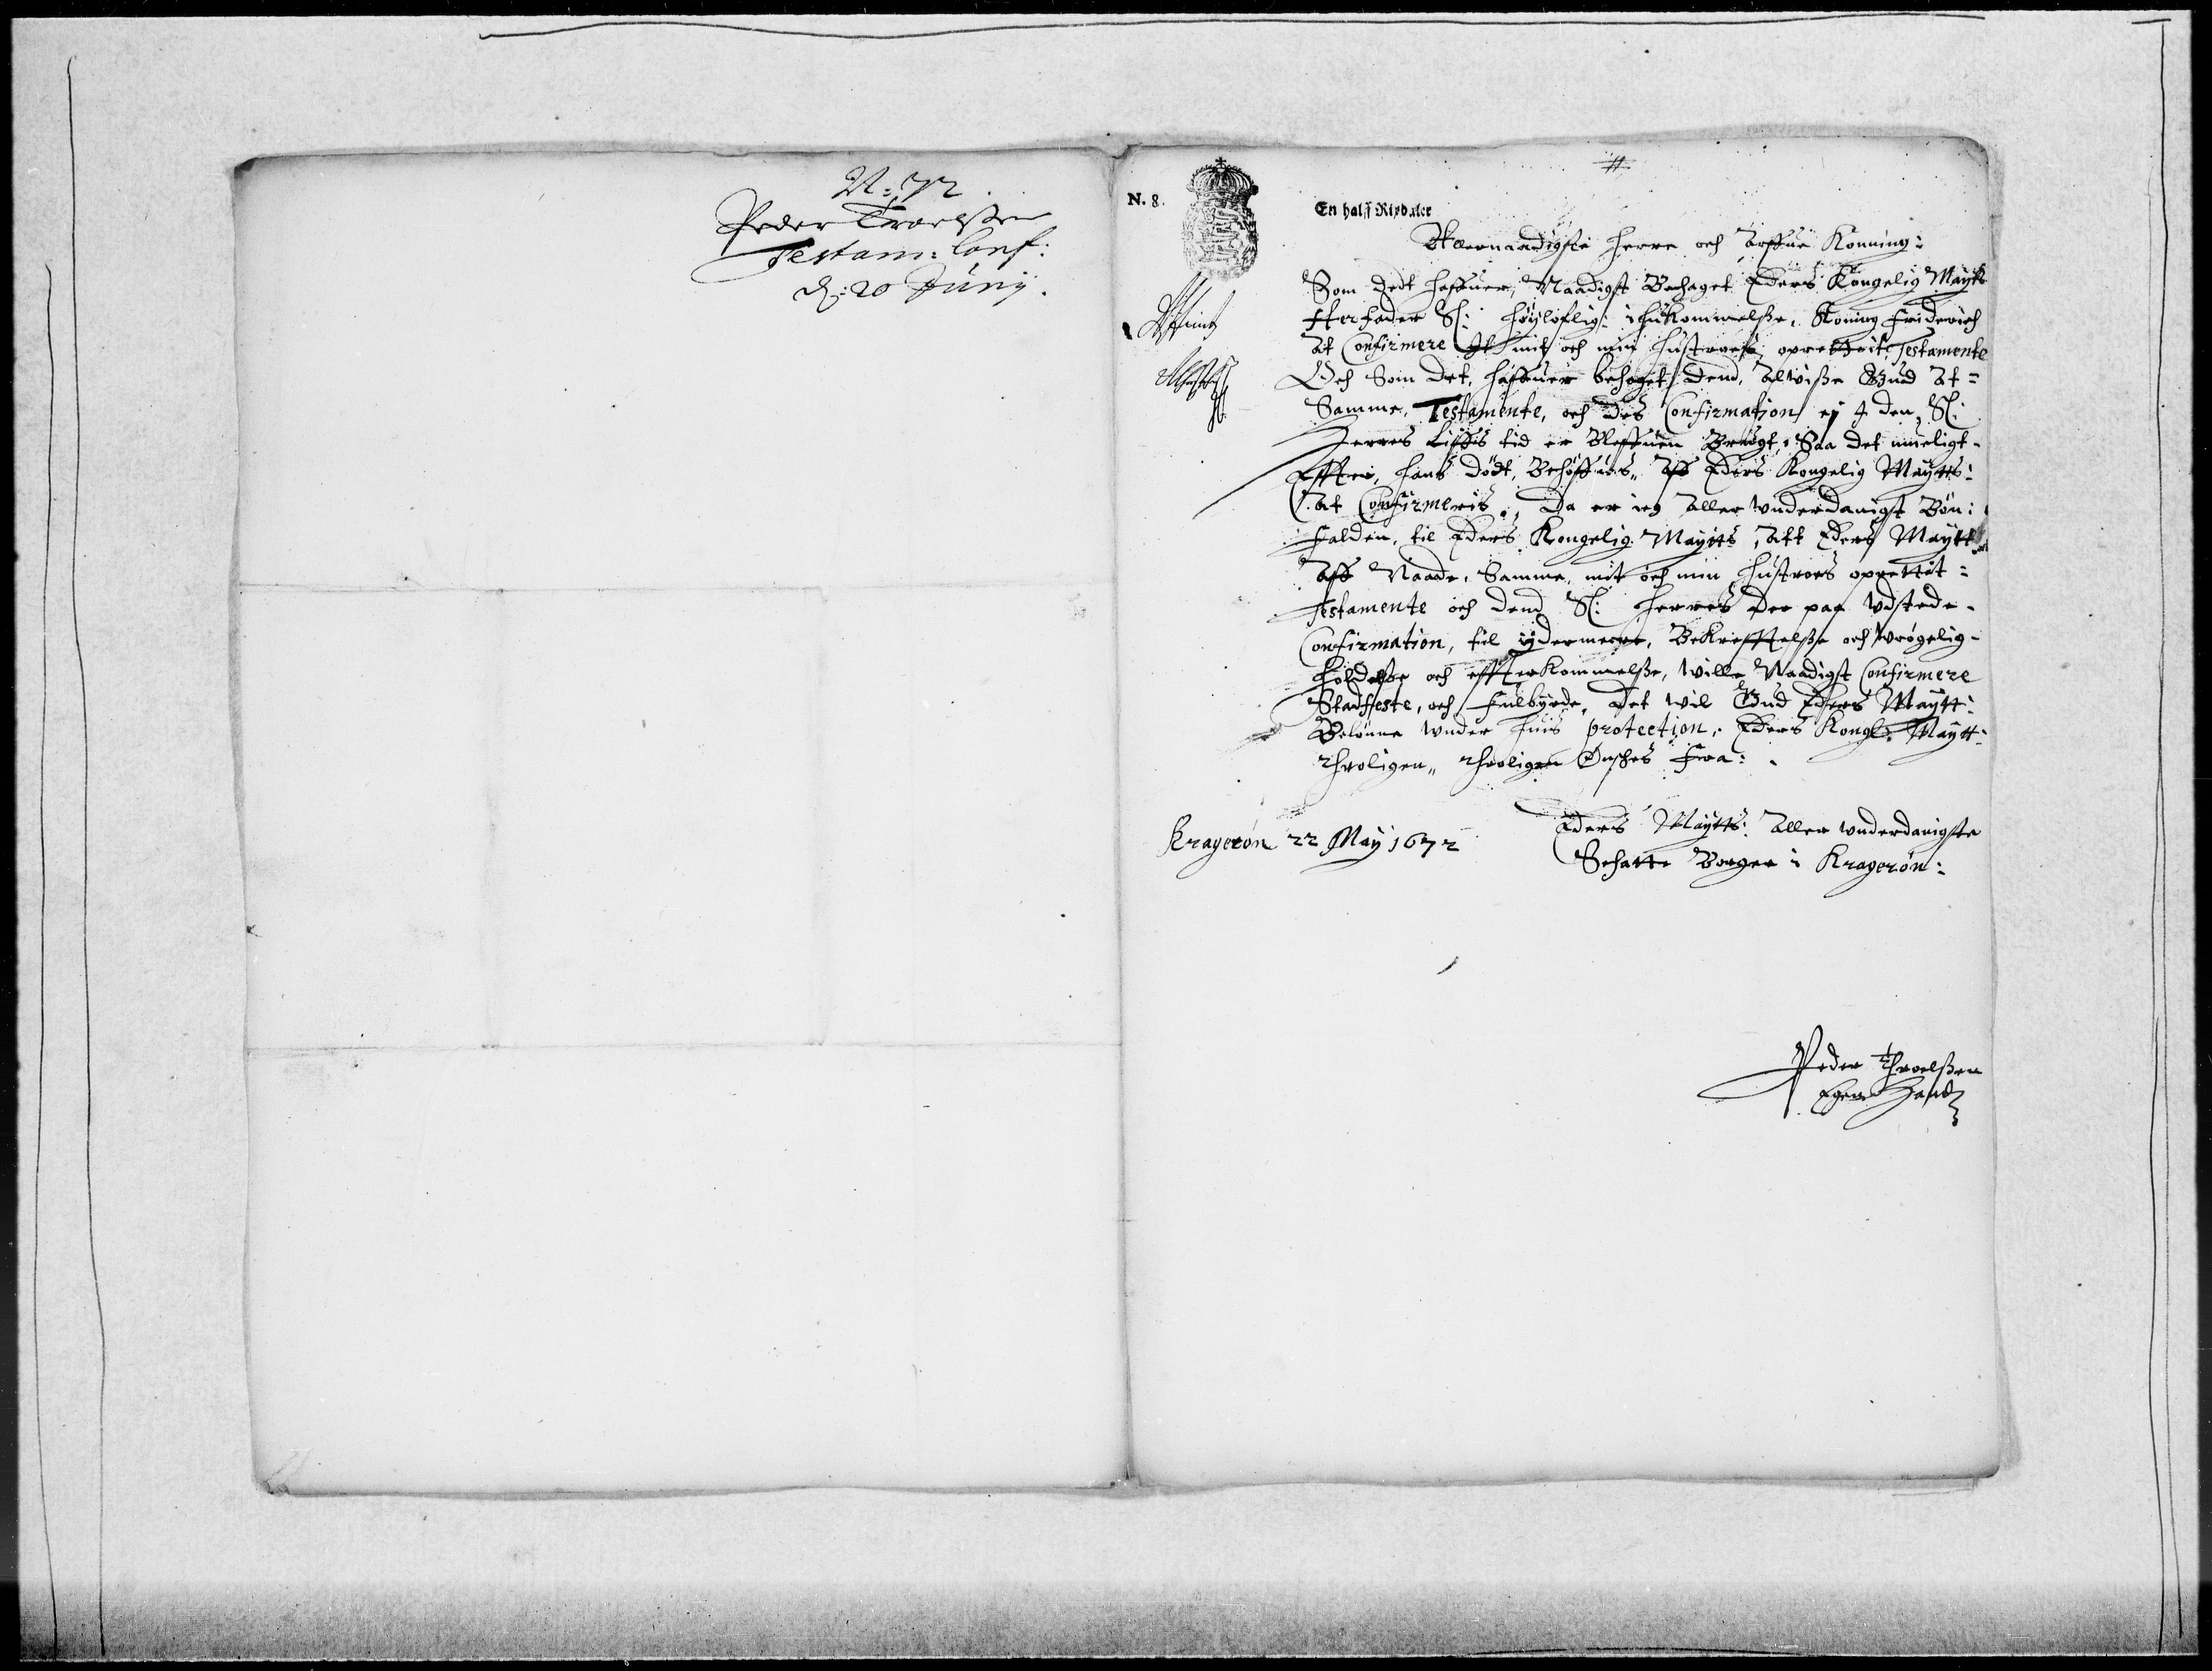 N: 72
Peder Troelssen
Testam: Conf:
d: 20 Junij.
N. 8.
En halff Rixdaler
Allernaadigste Herre och Arffue Konning:
Som Jedt haffuer, Naadigst Behaget Eders Kongelig Maytts
Herfader Sl: høÿloflig: ihukommelße, Koning Friderich
At Confirmere Et mit och min Hustroes oprettett Testamente
Och Som det, haffuer behaget dend, Alviiße Gud At=
Samme, Testamente, och dis Confirmation ej J den Sl:
Herres Liffs tid er Bleffuen Brugt, Saa det nueligt-
Effter, hans Dødt, Behøffues, Aff Eders Kongelig Maytts:
At Confirmeris, Da er ieg Aller underdanigst Bøn:
falden, til Eders Kongelig Maytts, Att Eders Maytt
Aff Naade, Samme, mit och min Hustroes oprettet=
Testamente och dend Sl: Herres der paa Udstede-
Confirmation, til ÿdermeere, Bekrefftelße och Urøgelig-
holdelße och effterkommelße, Wille Naadigst Confirmere
Stadfeste, och Fulbyrde, Det wil Gud Eders Maytt:
Belønne under huis protection, Eders Kongl: Maytt:
throligen, throligen Ønsches Fra:
Kragerøn 22 May 1672
Eders Maytts: Aller underdanigste
Schatte Borger i Kragerøn:
Peder Throelßen
Egen Hand